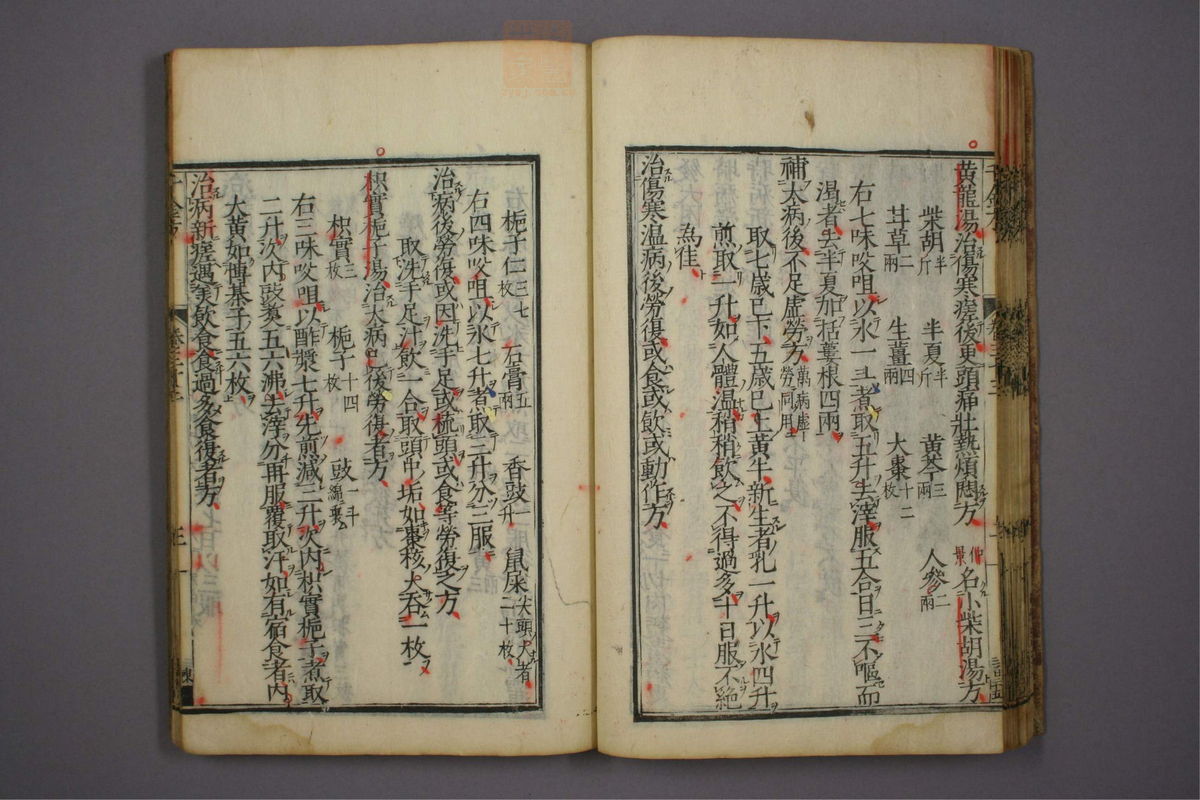 黄龍湯治傷寒瘥後更頭痛壯熱煩悶方仲景名小柴胡湯方
柴胡半斤 半夏半升 黄芩三兩 人參二兩
甘草二兩 生薑四兩 大棗十二枚
右七味㕮咀以水一斗煮取五升去滓服五合日三不嘔而
渴者去半夏加栝蔞根四兩
補大病後不足虚勞方萬病虚勞同用
取七歳已下五歳已上黄牛新生者乳一升以水四升
煎取一升如人體温稍稍飲之不得過多十日服不絶
為佳
治傷寒温病後勞復或食或飲或動作方
梔子仁三七枚 石膏五兩 香豉一升 鼠屎尖頭大者二十枚
右四味㕮咀以水七升煮取三升分三服
治病後勞復或因洗手足或梳頭或食等勞復之方
取洗手足汁飲一合取頭中垢如棗核大吞一枚
枳實梔子湯治大病瘥後勞復者方
枳實三枚 梔子十四枚 豉一升綿裹
右三味㕮咀以酢漿七升先煎減三升次内枳實梔子煮取
二升次内豉煮五六沸去滓分再服覆取汗如有宿食者内
大黄如博碁子五六枚
治病新瘥遇美飲食食過多食復者方